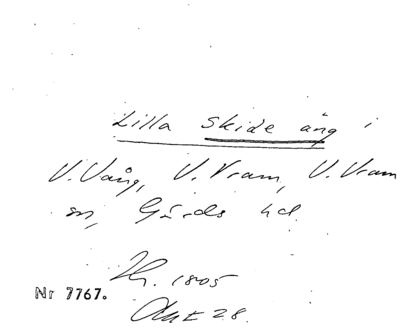 Lilla Skide äng i
V. Vång, V. Vram, V. Vram
sn, Gärds hd.
Hr. 1805
Nr 7767.
Akt 28.